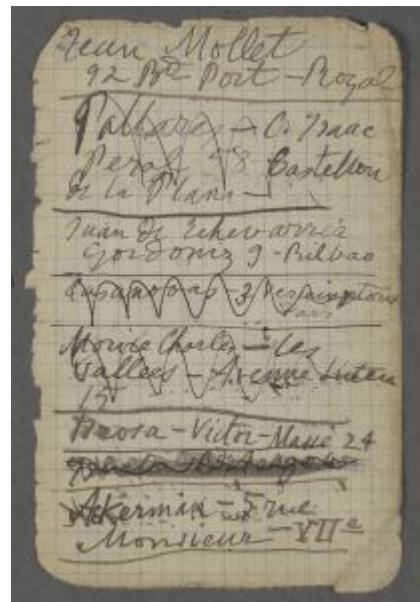 Jean Mollet
92 Bd Port-Royal
Pallares - C. Isaac
Peral 48 Castellon
de la Plana -
Juan De Echevarria
Gordoniz 9 - Bilbao
Casanovas - 3
Paris
Morice Charles - Les
Vallées - Avenue
15
- Victor-Massé 24
Ackerman - 5 rue
Monsieur - VIIe